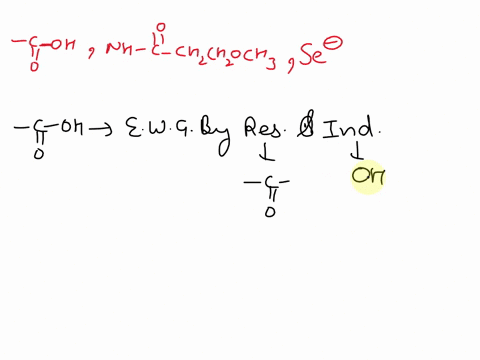 O
-C-OH, NH-C-CH2CH2OCH3, Se⊖
O
-C-OH → E.W.G. By Res. & Ind.
O
-C- OH
O